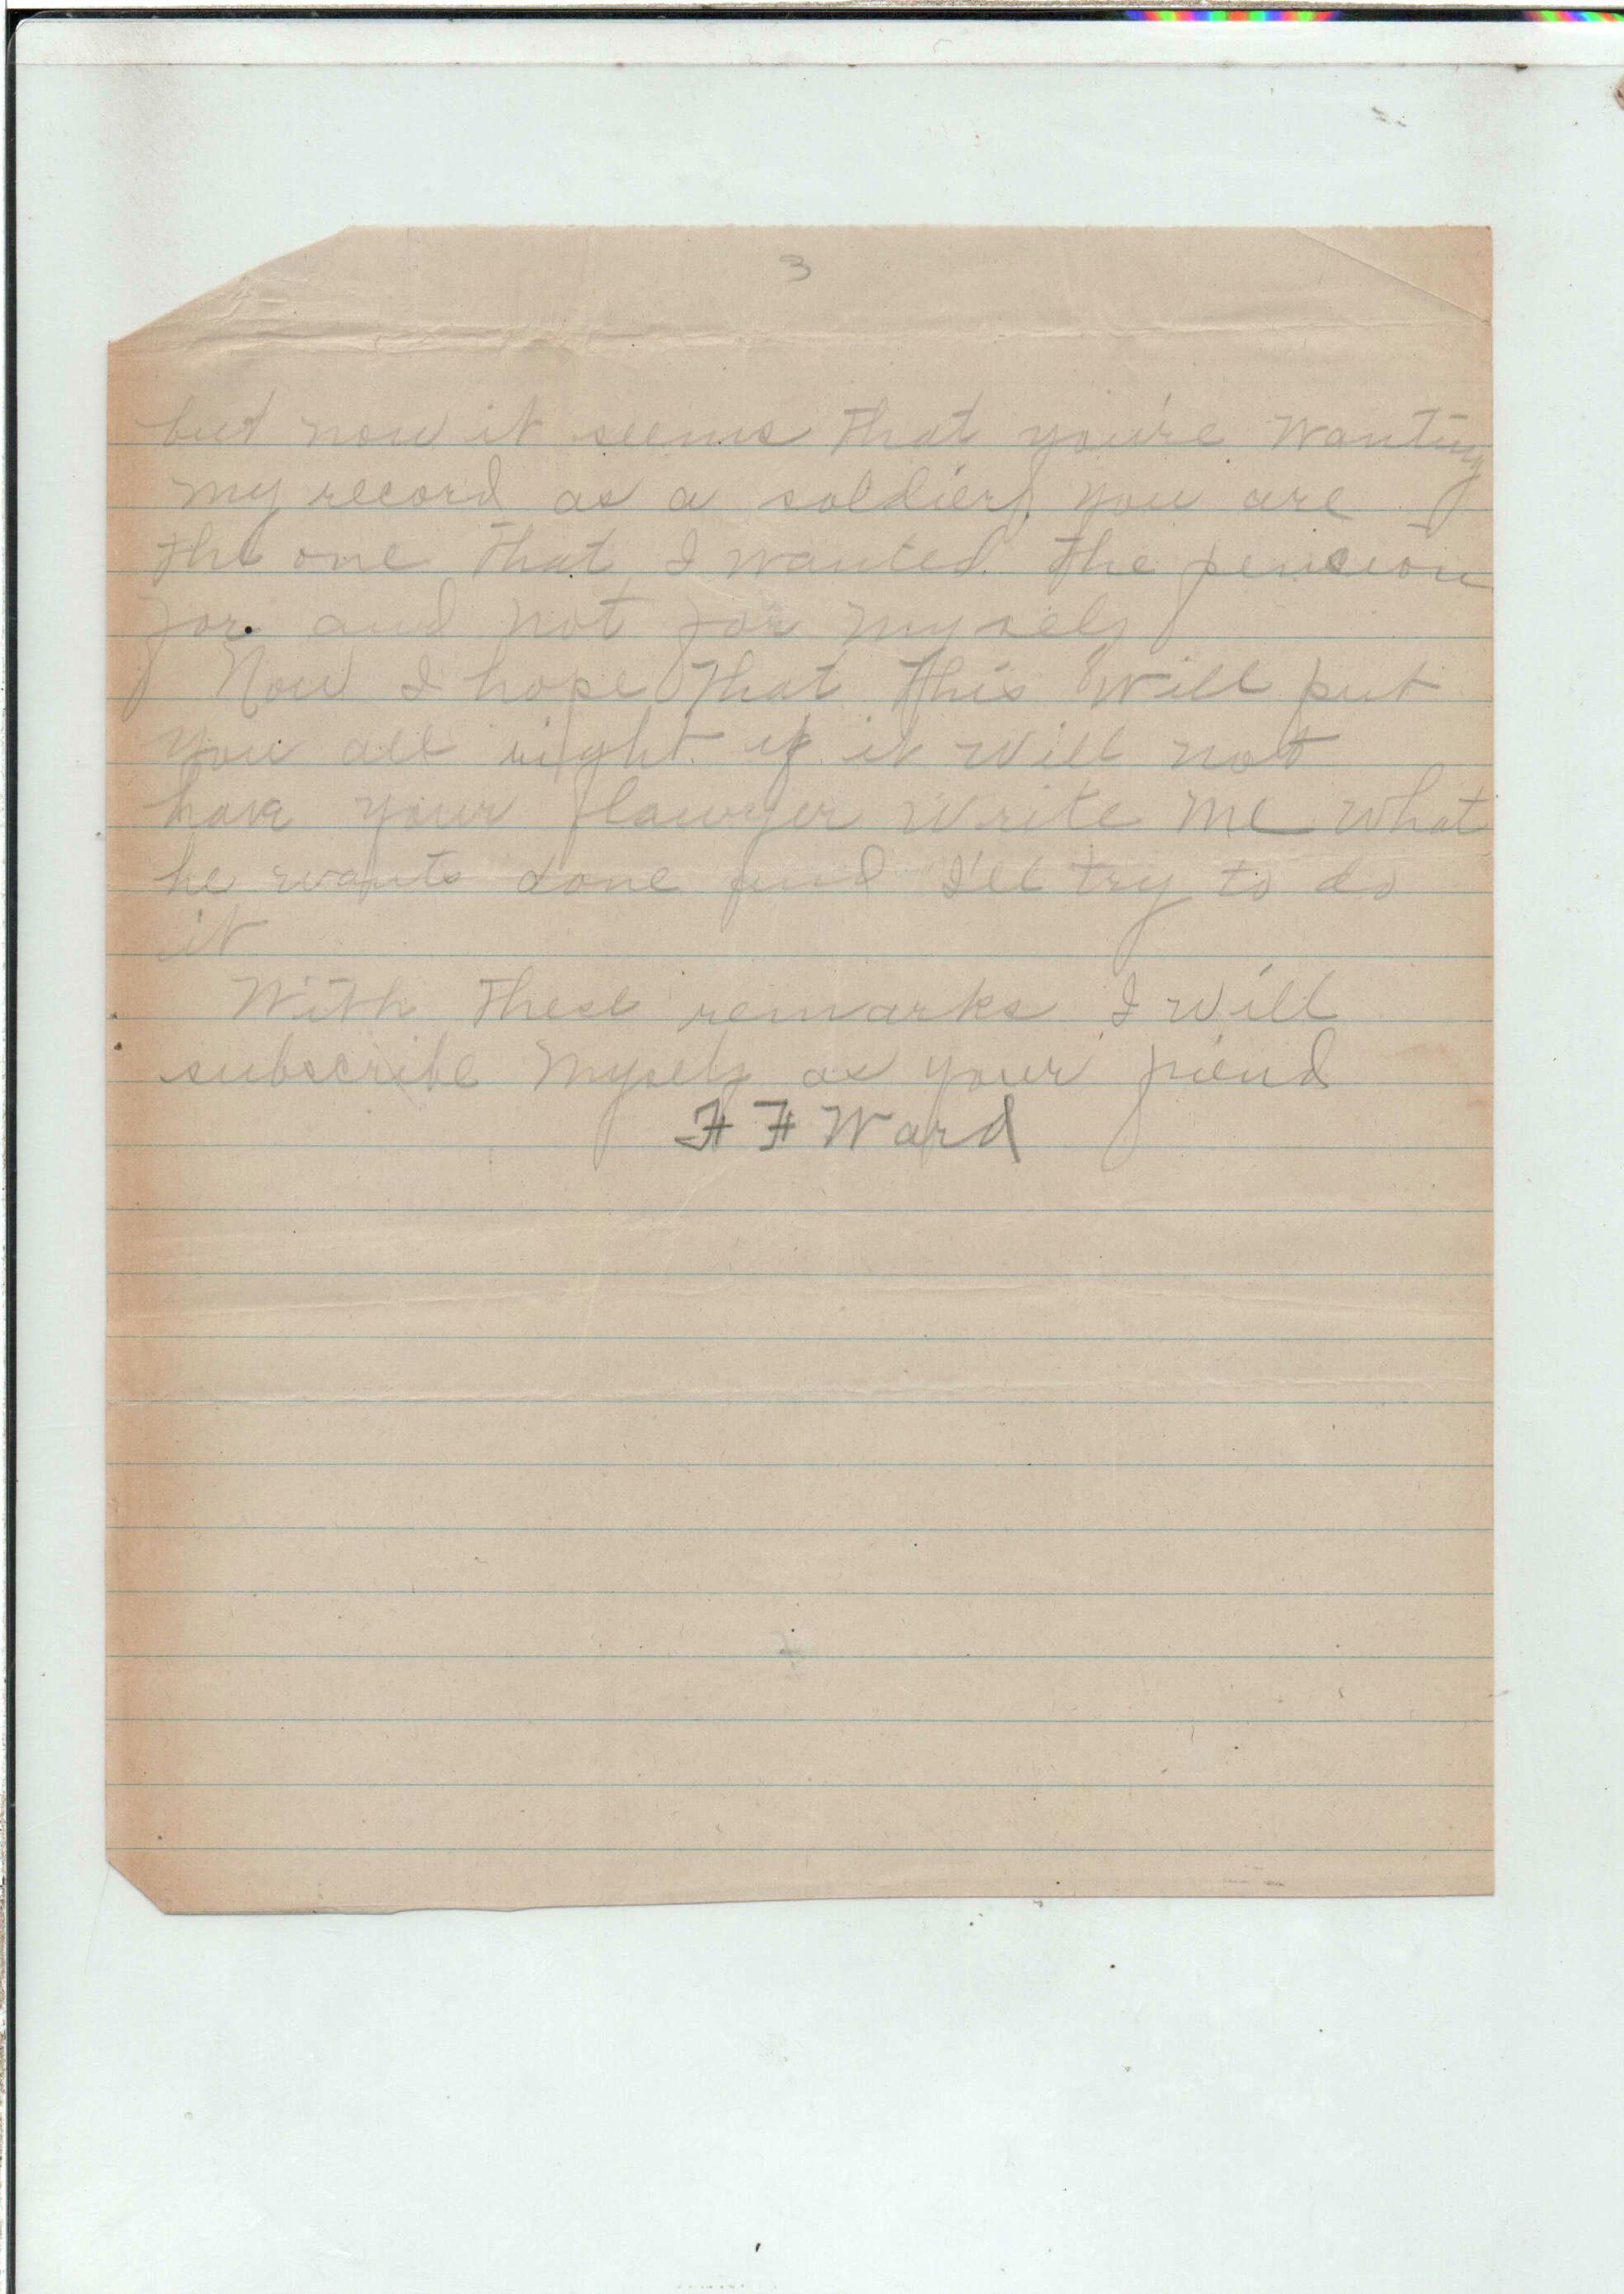 3
but now it seems that you're wanting
my record as a soldier, you are
the one that I wanted the pension
for and not for myself
Now I hope that this will put
you all right if it will not
have your lawyer write me what
he wants done and I'll try to do
it
With these remarks I will
subscribe myself as your friend
F F Ward